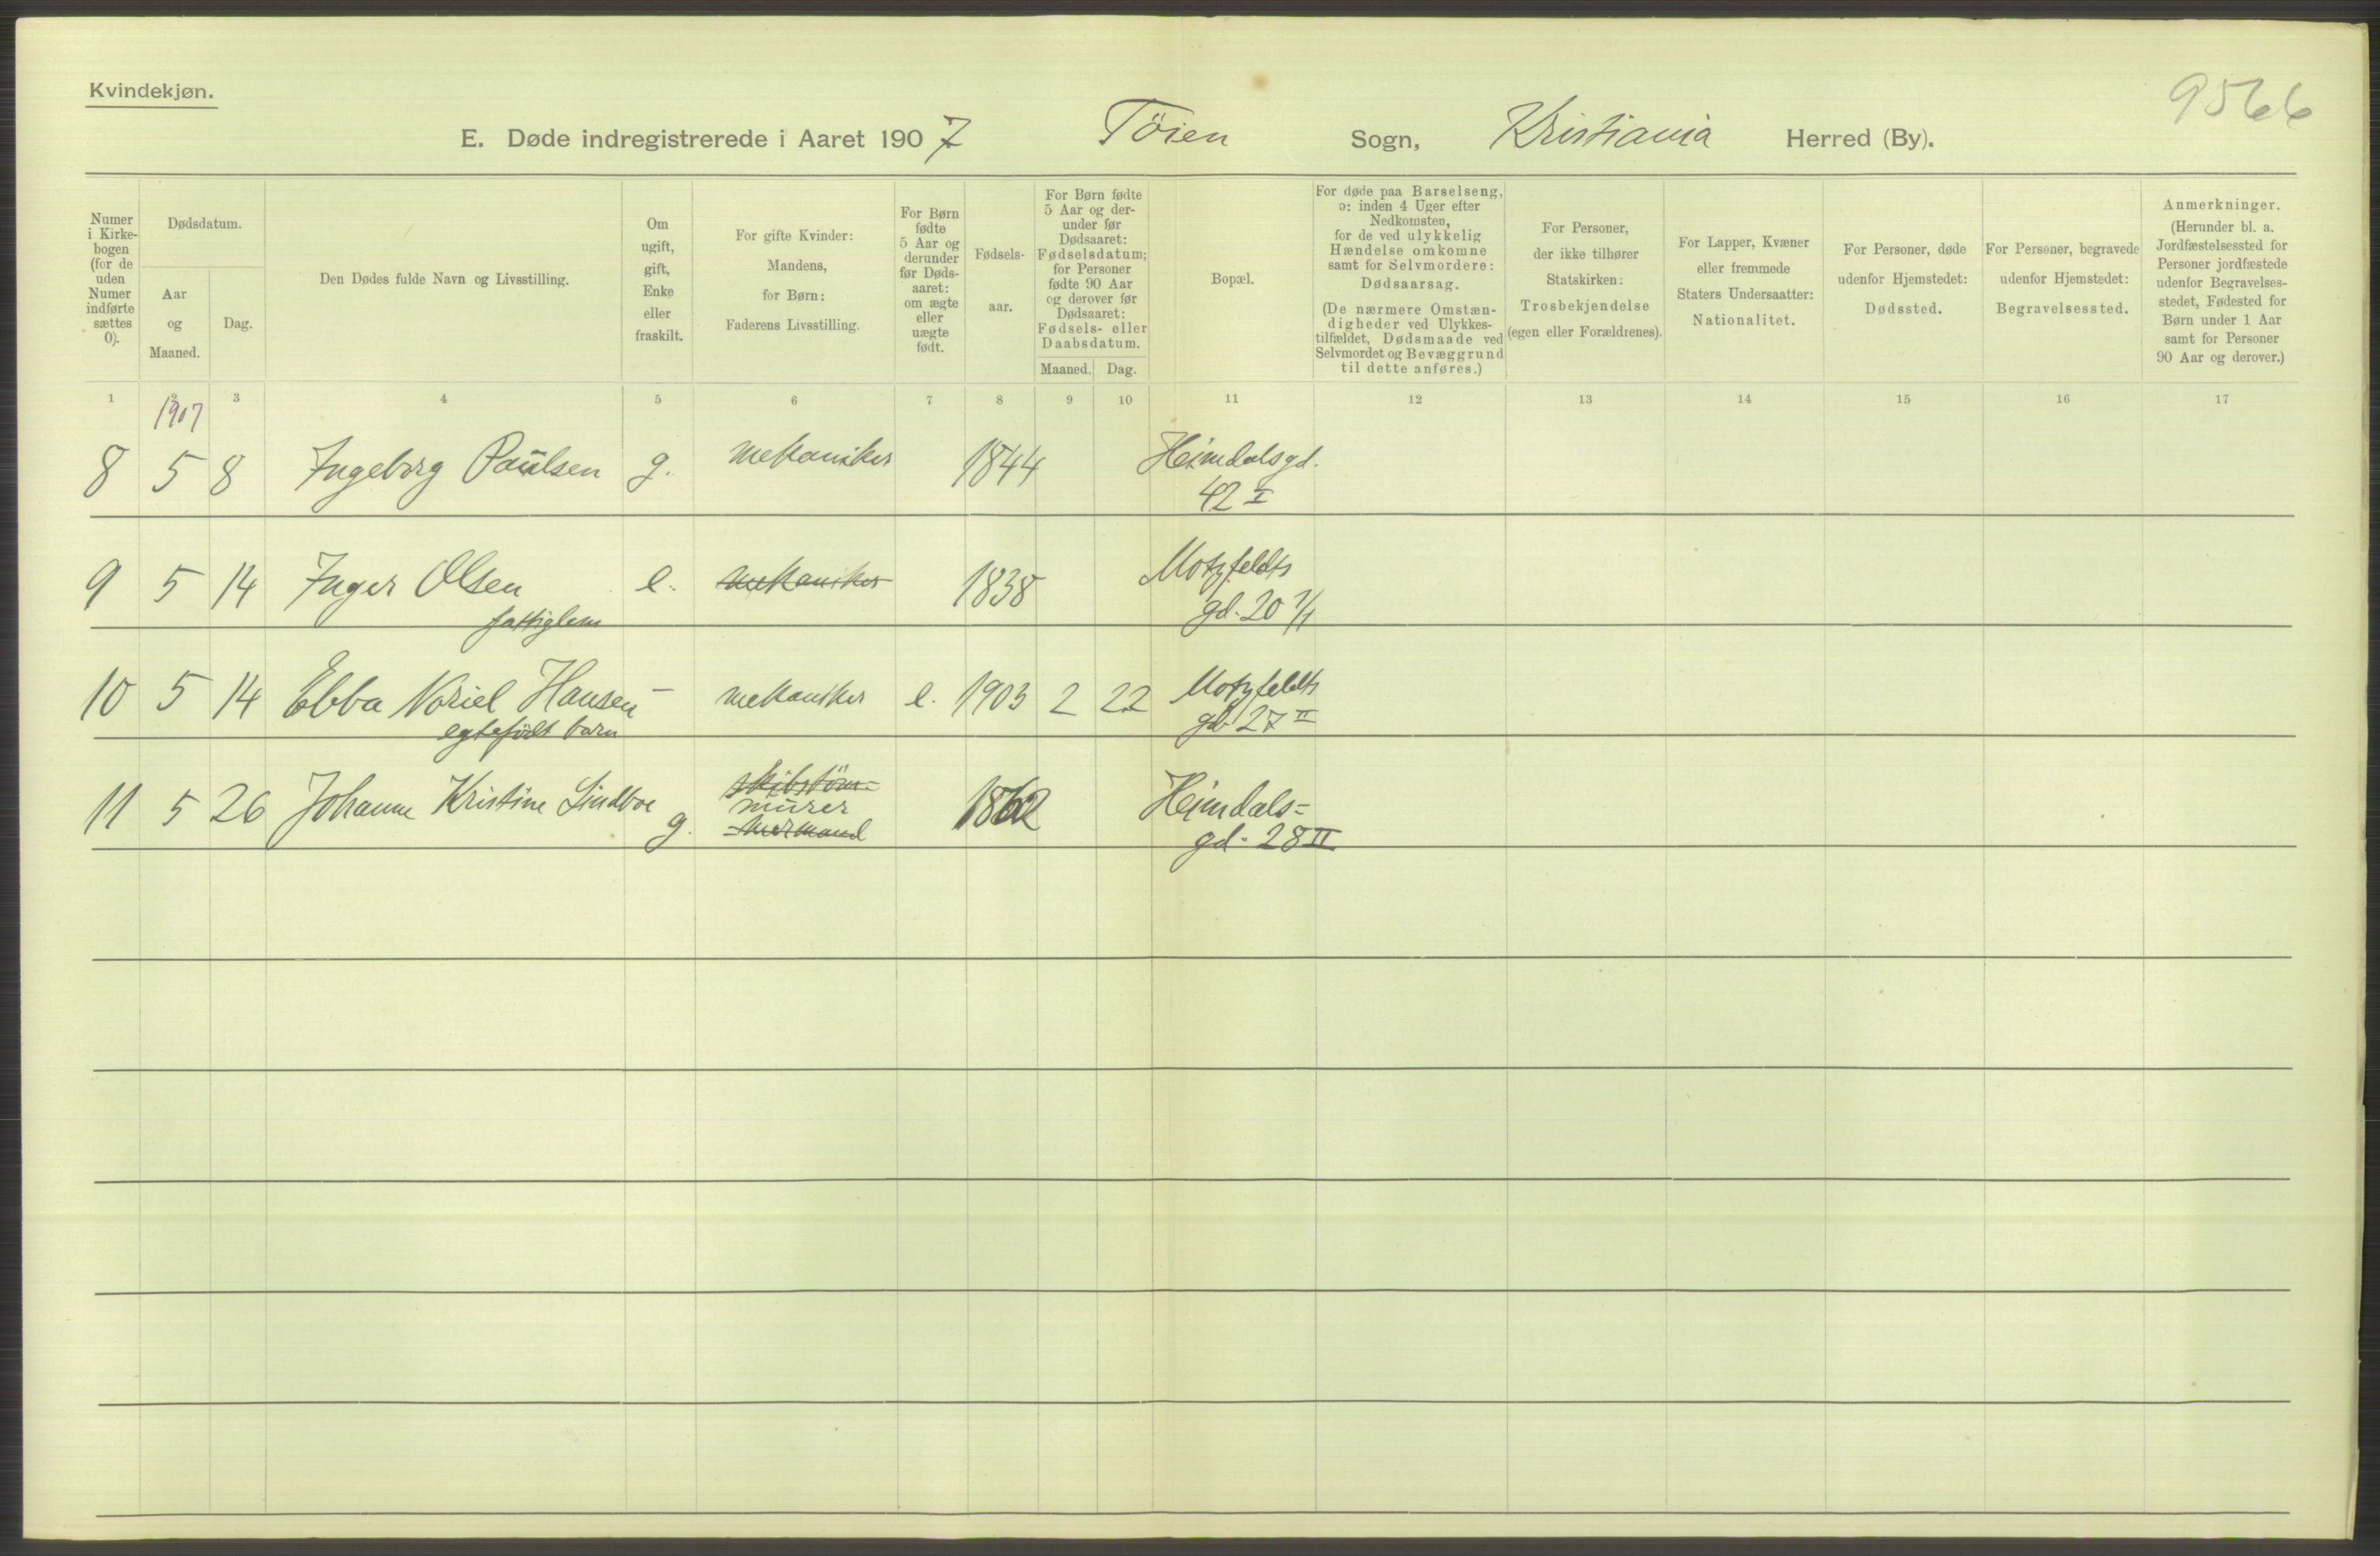 Kvindekjøn.
9566
E. Døde indregistrerede i Aaret 1907 Töien Sogn, Kristiania Herred (By).
Numer i Kirkebogen (for de uden Numer indførte sættes 0).
Dødsdatum.
Aar og Maaned.
Dag.
Den Dødes fulde Navn og Livsstilling.
Om ugift, gift, Enke eller fraskilt.
For gifte Kvinder: Mandens, for Børn: Faderens Livsstilling.
For Børn fødte 5 Aar og derunder før Dødsaaret: om ægte eller uægte født.
Fødselsaar.
For Børn fødte 5 Aar og derunder før Dødsaaret: Fødselsdatum; for Personer fødte 90 Aar og derover før Dødsaaret: Fødsels- eller Daabsdatum.
Maaned. Dag.
Bopæl.
For døde paa Barselseng, ɔ: inden 4 Uger efter Nedkomsten, for de ved ulykkelig Hændelse omkomne samt for Selvmordere: Dødsaarsag.
(De nærmere Omstændigheder ved Ulykkestilfældet, Dødsmaade ved Selvmordet og Bevæggrund til dette anføres.)
For Personer, der ikke tilhører Statskirken: Trosbekjendelse (egen eller Forældrenes).
For Lapper, Kvæner eller fremmede Staters Undersaatter: Nationalitet.
For Personer, døde udenfor Hjemstedet: Dødssted.
For Personer, begravede udenfor Hjemstedet: Begravelsessted.
Anmerkninger.
(Herunder bl. a. Jordfæstelsessted for Personer jordfæstede udenfor Begravelsesstedet, Fødested for Børn under 1 Aar samt for Personer 90 Aar og derover.)
1 2 3 4 5 6 7 8 9 10 11 12 13 14 15 16 17
1907
8 5 8 Ingeborg Paulsen g. mekaniker 1844 Heimdalsgd.
42 I
9 5 14 Inger Olsen e. mekaniker 1838 Motzfeldts
fattiglem gd. 20 1/1
10 5 14 Ebba Noriel Hansen – mekaniker e. 1903 2 22 Motzfeldts
egtefödt barn gd 27 II
skibstöm=
11 5 26 Johanne Kristine Lindboe g. murer 1862 Heimdals=
=mermand gd. 28 II